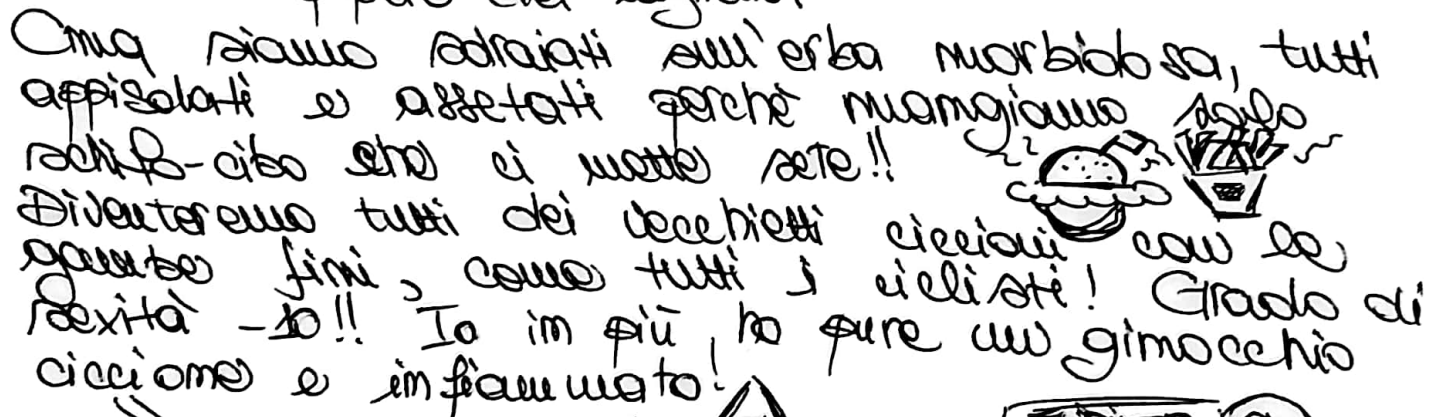 Cmq siamo sdraiati sull'erba morbidosa, tutti
appisolati e assetati perchè mangiamo solo
schifo-cibo che ci mette sete!!
Diventeremo tutti dei vecchietti ciccioni con le
gambe fini, come tutti i ciclisti! Grado di
sexità -10!! Io in più, ho pure un ginocchio
ciccione e infiammato!